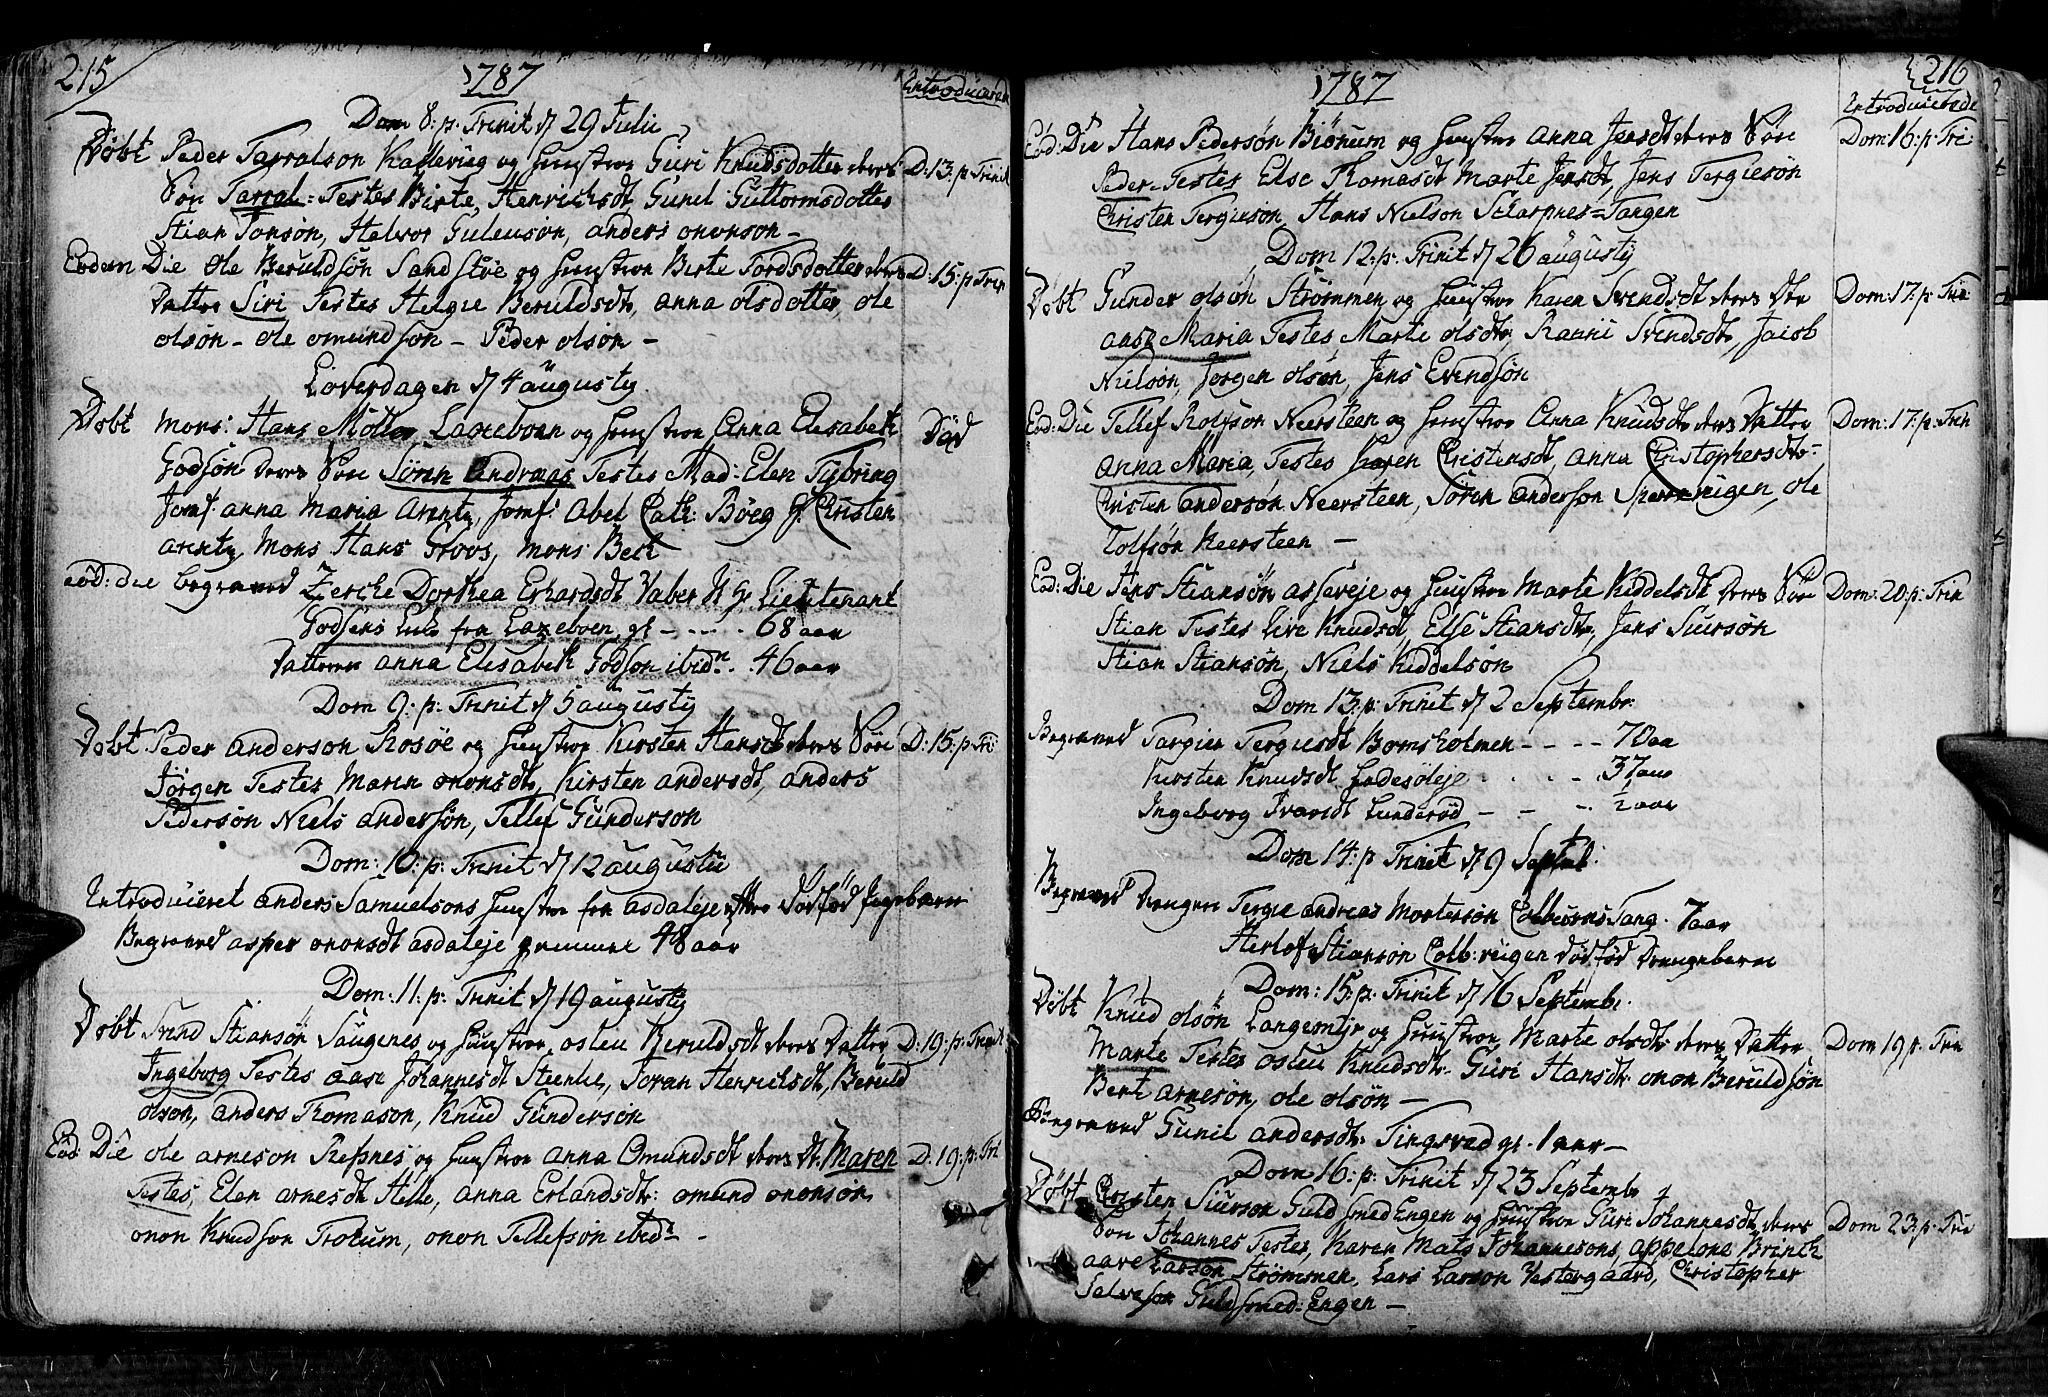 215
1787
Introducerede
Dom 8: p: Trinit d 29 Julii
Døbt Peder Tarralson Kallevieg og Hustroe Guri Knudsdotter deres D: 13: p: Trinit
Søn Tarral = Testes Birte Henrichsdt, Gunil Guttormsdotter
Stian Torsøn, Halvor Gulensøn, anders ononson -
Eodem Die ole Beruldsøn Sandstøe og Hustroe Birte Tordsdotter deres D: 15: p Trin
Datter Siri Testes Helgie Beruldsdt, anna olsdotter, ole
olsøn - ole omundsøn - Peder olsøn -
Løverdagen d 4 augusty
Døbt Mons: Hans Møller Laxeboen og Hustroe Anna Elisabeth Død
Godsøn deres Søn Søren Andreas Testes Mad: Elen Tybring
Jomf: anna Maria Arentz, Jomf: Abel Cath: Bøeg Hr Christen
arentz, Mons Hans Groos, Mons Bech
eod: die begraved Zerche Dorthea Erhardsdt Vaber Hr Lieutenant
Godsens Enke fra Laxeboen gl - - - 68 aar
Datteren anna Elisabeth Godson ibidn . 46 aar
Dom 9: p: Trinit d 5 augusty
Døbt Peder anderson Rosøe og Hustroe Kirsten Hansdt deres Søn D: 15: p Tri:
Jørgen Testes Maren ononsdt, Kirsten andersdt, anders
Pedersøn Niels andersøn, Tellef Gunderson
Dom: 10: p: Trinit d 12 augustii
Introduceret anders Samuelsons Hustroe fra asdaleje efter Dødfød Pigebarn
Begraved asper ononsdt asdaleje gammel 48 aar
Dom: 11: p: Trinit d 19 augusty
Døbt Svend Stiansøn Saugenes og Hustroe osleu Beruldsdt deres Datter D: 19: p: Trinit
Ingeborg Testes aase Johannesdt Steenlie, Joran Henrichsdt, Beruld
olson, anders Thomason, Knud Gunderson
Eod: Die ole arneson Resnes og Hustroe anna Omundsdt deres dt. Maren D: 19: p: Tri
Testes, Elen arnesdt Helle, anna Erlandsdtr: omund ononsøn
onon Knudson Tronum, onon Tellefsøn ibidn -
216
1787
Introducerede
Eod: Die Hans Pedersøn Biørum og Hustroe Anna Jensdt deres Søn Dom: 16: p: Tri
Peder - Testes Else Thomasdt Marte Jensdt, Jens Tergiesøn
Christen Tergiesøn, Hans Nielson Scharpnes = Tangen
Dom 12: p: Trinit d 26 augusty
Døbt Gunder olsøn Strømmen og Hustroe Karen Svendsdt deres Dtr Dom: 17: p: Trin
anne Maria Testes Marte olsdtr, Ranni Svendsdt, Jacob
Nielsøn, Jørgen olsøn, Jens Evendsøn
Eod: Die Tellef Rolfson Neersteen og Hustroe Anna Knudsdt deres Datter Dom: 17: p: Trin
Anna Maria, Testes Karen Christensdt, anna Christophersdtr -
Christen andersøn Neersteen, Søren anderson Sparrevigen, ole
Tolfsøn Neersteen -
Eod: Die Jens Stiansøn asseveje og Hustroe Marte Kiddelsdt deres Søn Dom: 20: p: Trin
Stian Testes Live Knudsdt, Else Stiansdtr, Jens Siursøn
Stian Stiansøn, Niels Kiddelsøn
Dom 13: p: Trinit d 2 Septembr:
Begraved Targier Tergiesdt Bomsholmen - - - - 70 aar
Kirsten Knudsdt Ladesøleje - - - - 37 aar
Ingeborg Ivarsdt Lunderød - - - ½ aar
Dom 14: p Trinit d 9 Septbr:
Begraved Drengen Tergie andreas Morterson Colbiørns Tang. 7 aar
Herlof Stianson Colb: viigen dødfød Drengebarn
Dom: 15: p: Trinit d 16 Septembr.
Døbt Knud olsøn Langemyr og Hustroe Marte olsdtr deres Datter Dom 19 p: Trin
Marte Testes osleu Knudsdt. Guri Hansdtr. onon Beruldsøn
Bent arnesøn, ole olsøn -
Begraved Gunil andersdtr. Tingsved gl. 1 aar -
Dom 16: p: Trinit d 23 Septembr
Døbt Christen Siurson Guldsmed Engen og Hustroe Guri Johannesdt, deres Dom 23: p: Trin
Søn Johannes Testes, Karen Mats Johannesons, appelone Brinch
aave Larson Strømmen, Lars Larson Vestergaard, Christopher
Salveson Guldsmed: Engen -